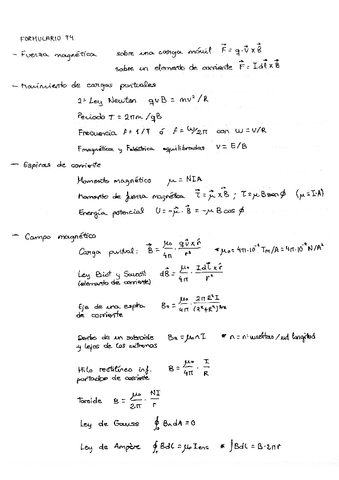 FORMULARIO T4
- Fuerza magnética   sobre una carga móvil  F⃗ = q·v⃗ x B⃗
sobre un elemento de corriente  F⃗ = I dl⃗ x B⃗
- Movimiento de cargas puntuales
2ª Ley Newton  qvB = mv²/R
Periodo T = 2πm/qB
Frecuencia f = 1/T  ó  f = ω/2π  con  ω = v/R
Fmagnética y Feléctrica equilibradas  v = E/B
- Espiras de corriente
Momento magnético  μ = NIA
Momento de fuerza magnética  τ⃗ = μ⃗ x B⃗ ; τ = μB sen φ  (μ = I·A)
Energía potencial  U = -μ⃗ · B⃗ = -μB cos φ
- Campo magnético
Carga puntual:  B⃗ = μ₀/4π · q v⃗ x r̂ / r²   * μ₀ = 4π·10⁻⁷ Tm/A = 4π·10⁻⁷ N/A²
Ley Biot y Savart  dB⃗ = μ₀/4π · I dl⃗ x r̂ / r²
(elemento de corriente)
Eje de una espira  = μ₀/4π · 2πR²I / (+R²)^3/2
de corriente
Dentro de un solenoide  = μ₀ n I   * n = nº vueltas / ud longitud
y lejos de los extremos
Hilo rectilíneo inf.  B = · I/R
portador de corriente
Toroide  B = μ₀/2π · NI/r
Ley de Gauss  ∮ Bn dA = 0
Ley de Ampère  ∮ B dl = μ₀ I enc   * ∫ B dl = B·2πr